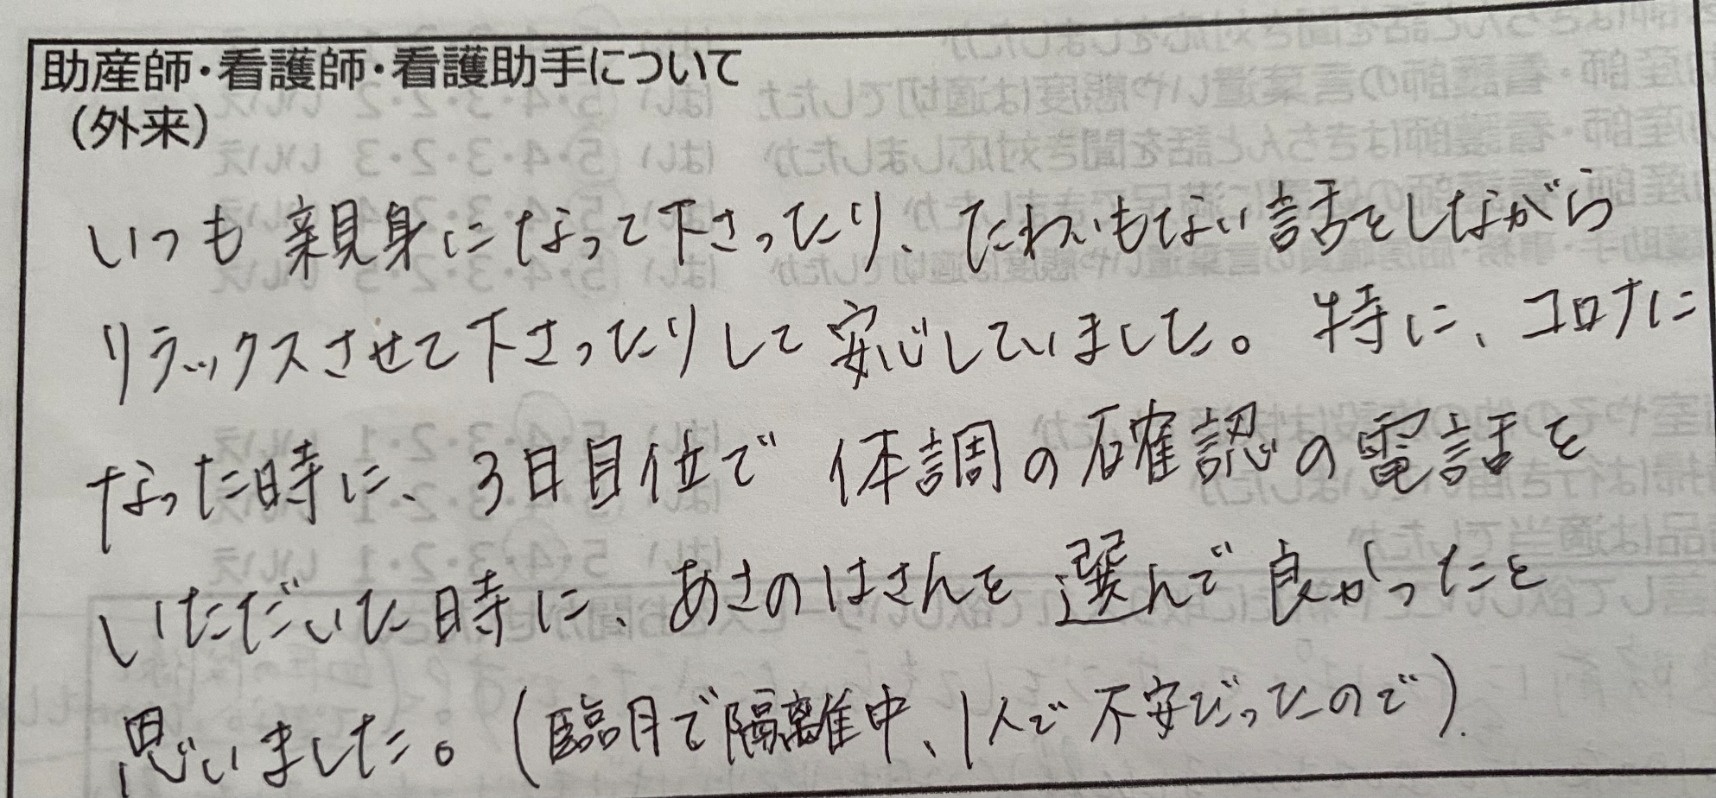 助産師・看護師・看護助手について
（外来）
いつも親身になって下さったり、たわいもない話をしながら
リラックスさせて下さったりして安心していました。特に、コロナに
なった時に、3日目位で体調の確認の電話を
いただいた時に、あさのはさんを選んで良かったと
思いました。(臨月で隔離中、1人で不安だったので).